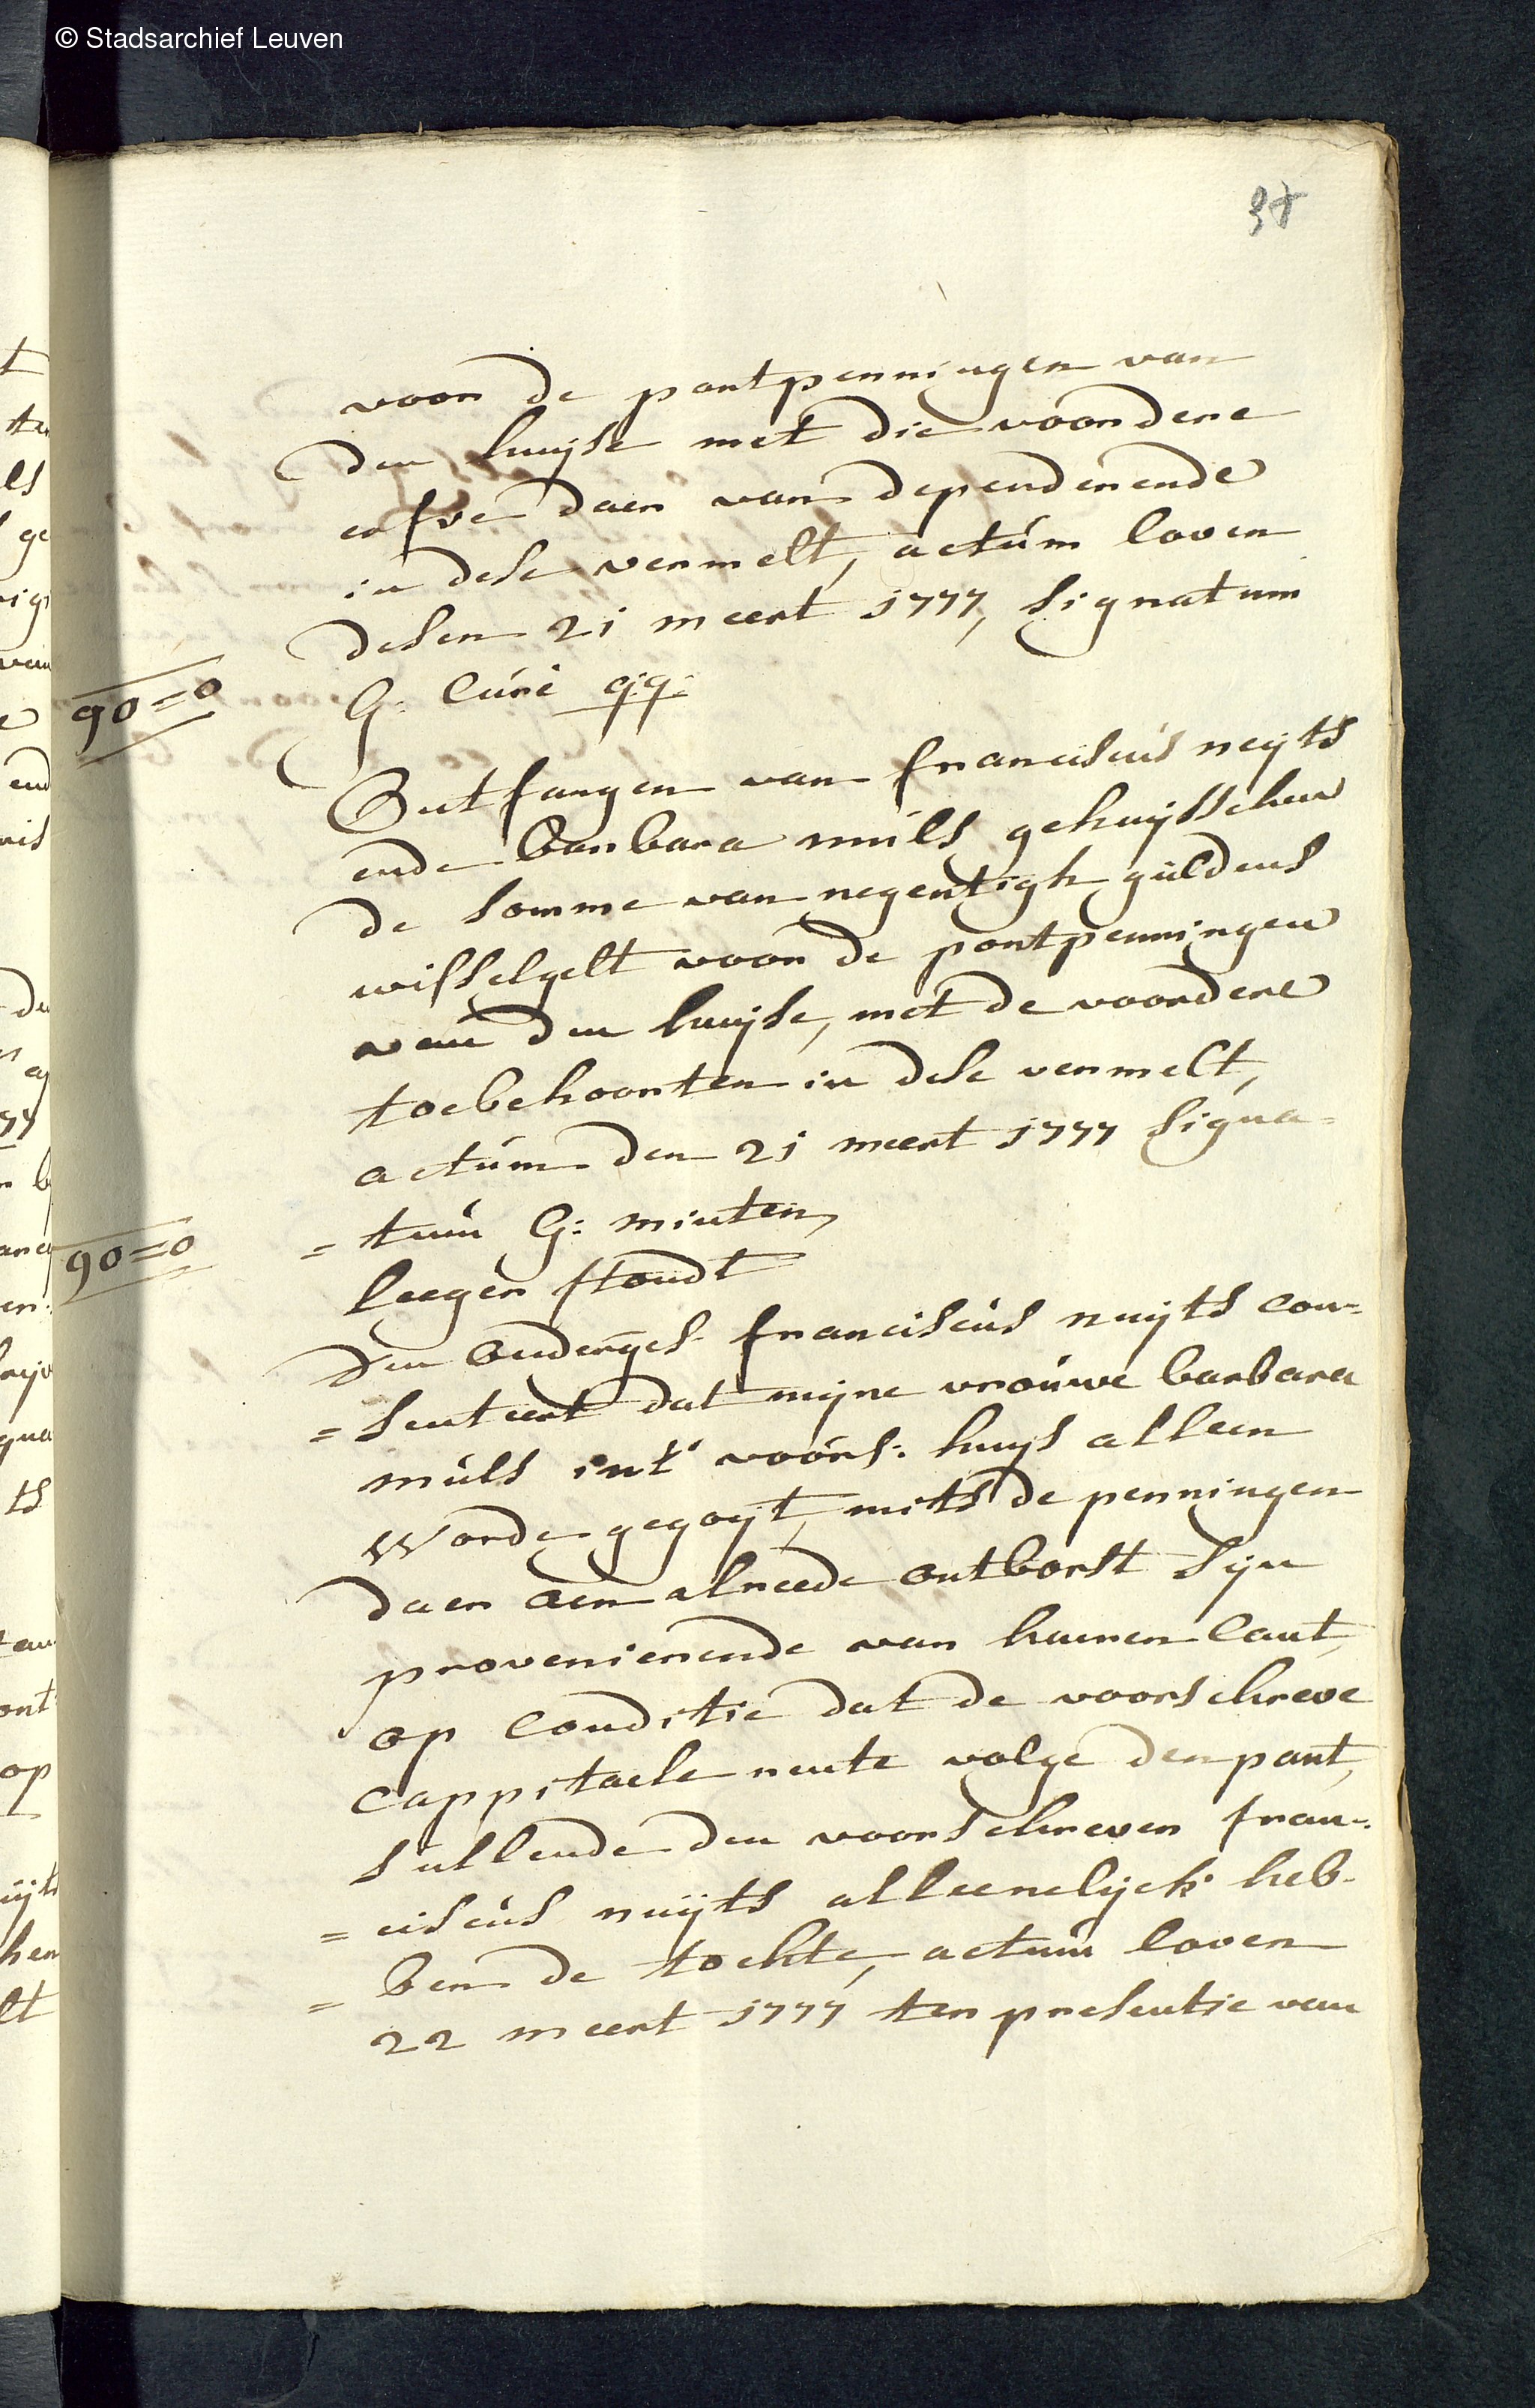 © Stadsarchief Leuven
37
voor de pontpenningen van
den huijse met die voordere
erfve daer van dependerende
in dese vermelt, actúm loven
desen 21 meert 1777, signatum
90=0
G: Cúré qq:
Ontfangen van franciscús neyts
ende barbara múls gehuijsschen
de somme van negentigh gúldens
wisselgelt voor de pontpenningen
van den huijse, met de voordere
toebehoorten in dese vermelt,
actúm den 21 meert 1777 signa=
=túm G: minten,
90=0
leeger stondt
Den onderges. franciscús nuijts con=
=senteert dat mijne vroúwe barbara
múls int' voors: huijs alleen
Worde gegoyt, mits de penningen
daer aen alreede ontborst sijn
provenierende van haeren cant,
op conditie dat de voorschreve
cappitaele rente volge den pant,
sullende den voorschreven fran=
=ciscús nuijts alleenelijck heb=
=ben de tochte, actúm loven
22 meert 1777 ter presentie van